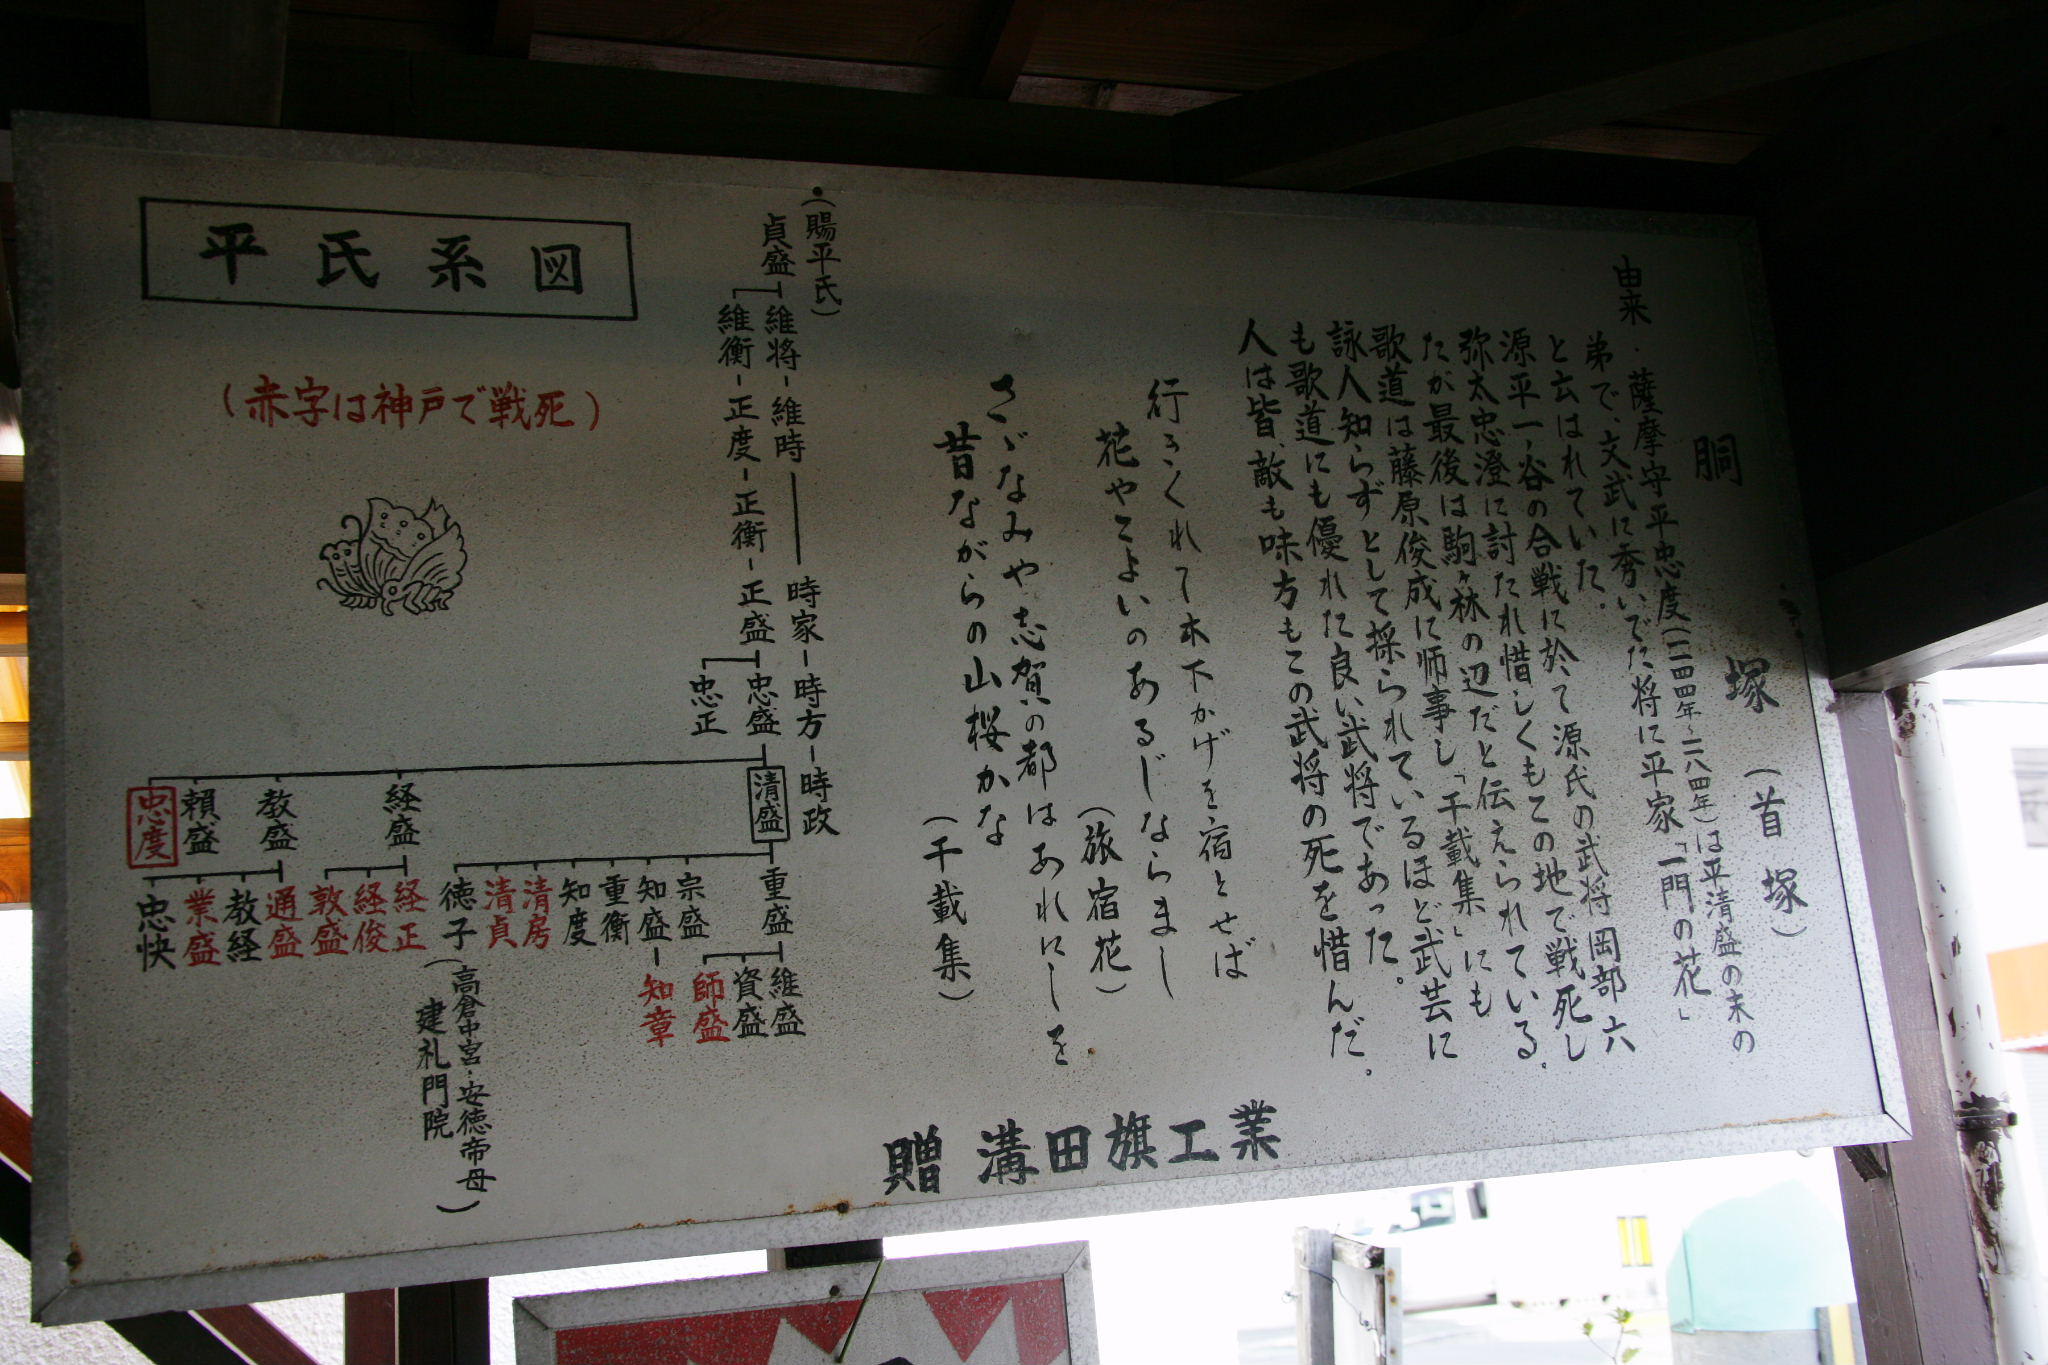 胴塚（首塚）
由来・薩摩守平忠度（一一四四年～一一八四年）は平清盛の末の
弟で、文武に秀いでた将に平家「一門の花」
と云はれていた。
源平一ノ谷の合戦に於て源氏の武将岡部六
弥太忠澄に討たれ惜しくもこの地で戦死し
たが最後は駒ヶ林の辺だと伝えられている。
歌道は藤原俊成に師事し「千載集」にも
詠人知らずとして採られているほど武芸に
も歌道にも優れた良い武将であった。
人は皆、敵も味方もこの武将の死を惜んだ。
行きくれて木下かげを宿とせば
花やこよいのあるじならまし
（旅宿花）
さゞなみや志賀の都はあれにしを
昔ながらの山桜かな
（千載集）
贈 溝田旗工業
平氏系図
（赤字は神戸で戦死）
（賜平氏）
貞盛
維将－維時－時家－時方－時政
維衡－正度－正衡－正盛
忠盛
忠正
清盛
経盛
教盛
頼盛
忠度
重盛
宗盛
知盛
重衡
知度
清房
清貞
徳子
（高倉中宮・安徳帝母
建礼門院）
維盛
資盛
師盛
知章
経正
経俊
敦盛
通盛
教経
業盛
忠快